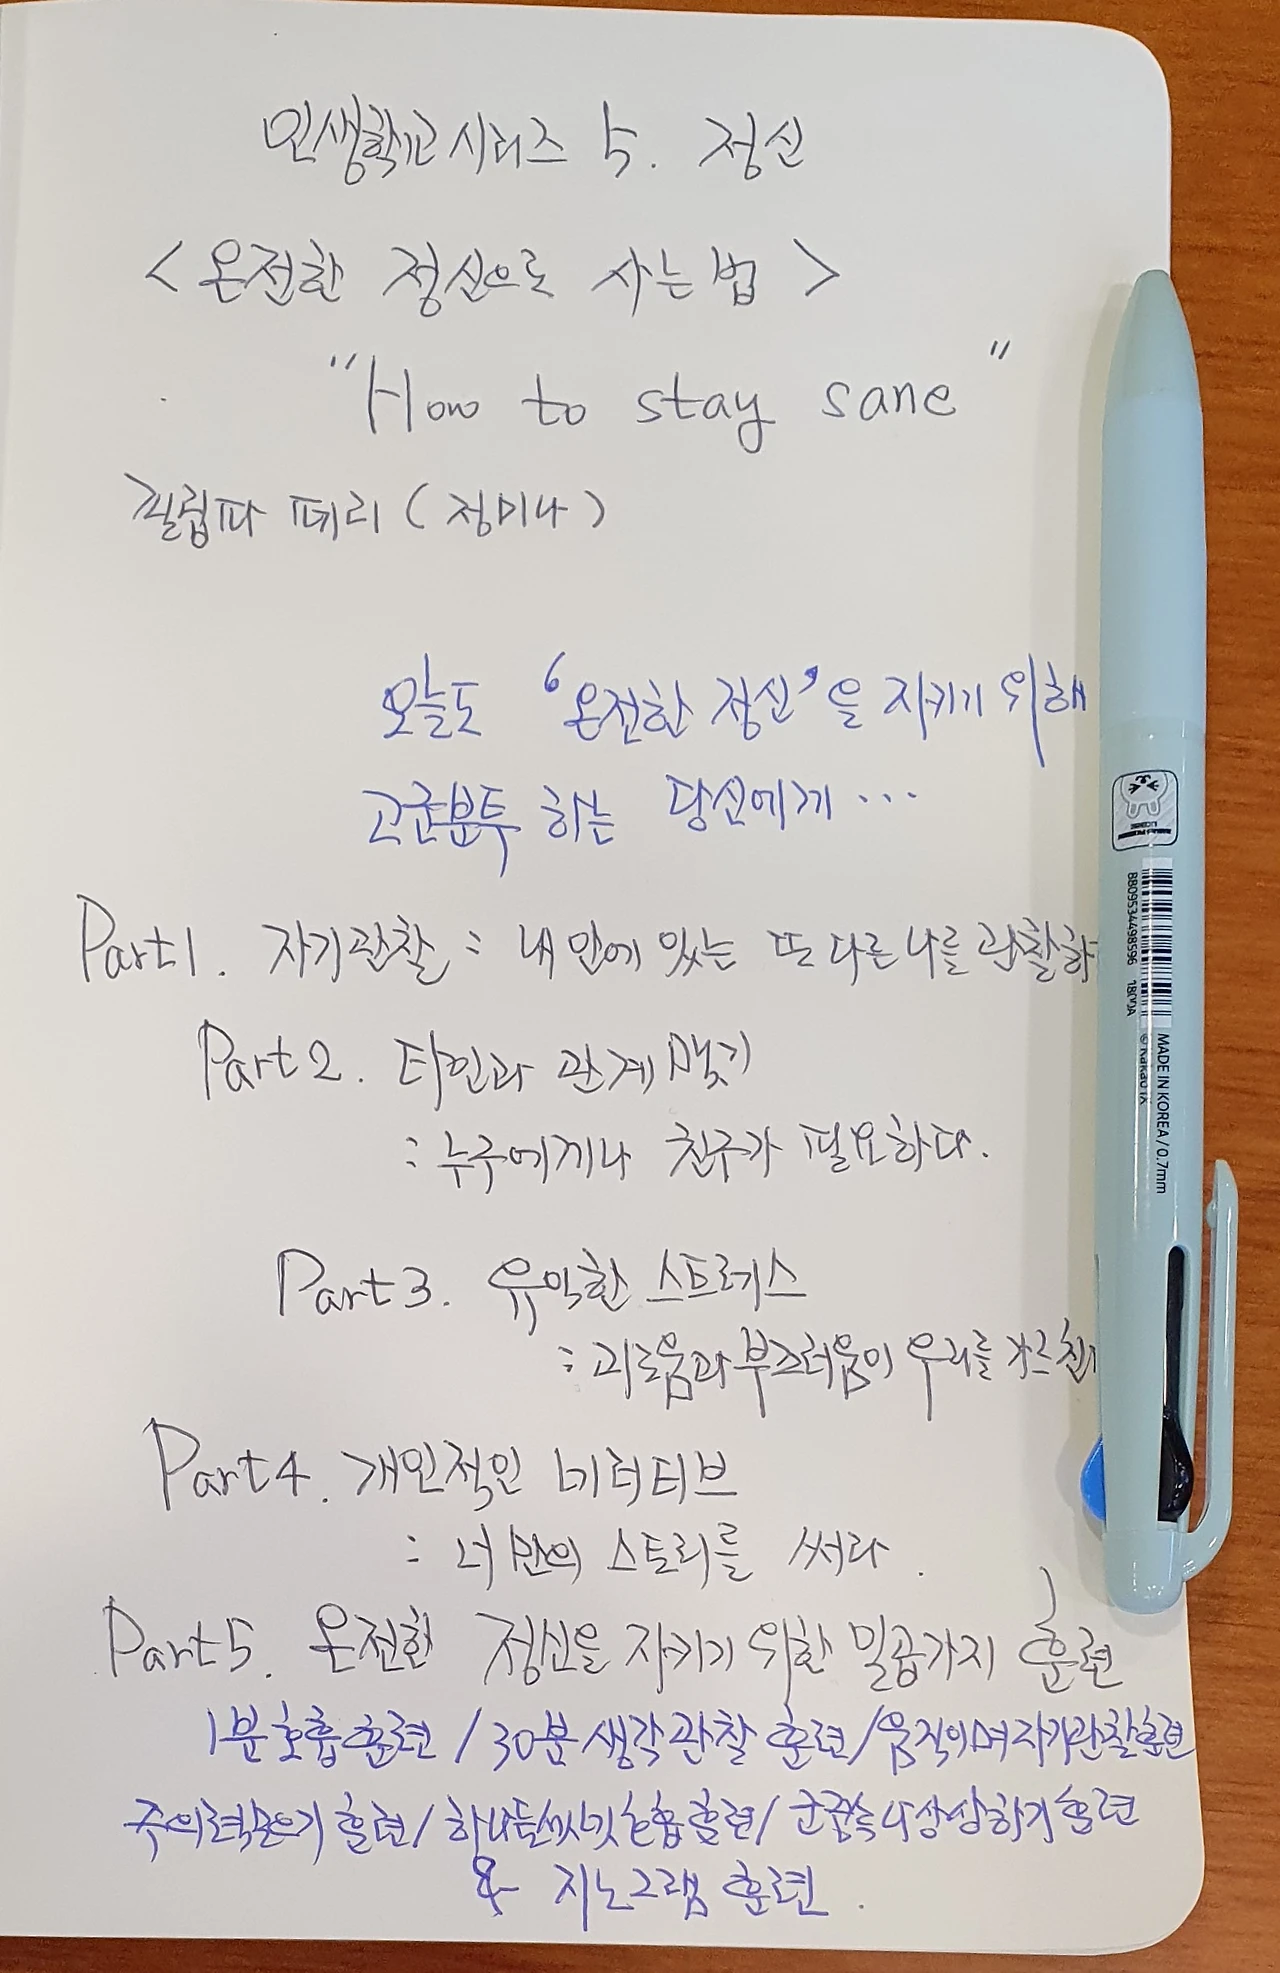 인생학교 시리즈 5. 정신
<온전한 정신으로 사는 법>
"How to stay sane"
필립파 페리 (정미나)
오늘도 '온전한 정신'을 지키기 위해
고군분투 하는 당신에게…
Part1. 자기관찰 : 내 안에 있는 또 다른 나를 관찰하
Part2. 타인과 관계 맺기
: 누구에게나 친구가 필요하다.
Part3. 유익한 스트레스
: 괴로움과 부끄러움이 우리를 가르친
Part4. 개인적인 네러티브
: 너만의 스토리를 써라.
Part5. 온전한 정신을 지키기 위한 일곱가지 훈련
1분 호흡 훈련 / 30분 생각 관찰 훈련 / 움직이며 자기관찰 훈련
주의력 모으기 훈련 / 하나 둘 셋 넷 호흡 훈련 / 군중 속 나 상상하기 훈련
& 지노그램 훈련.
8809534498596 1800A
© Kakao IX
MADE IN KOREA / 0.7mm